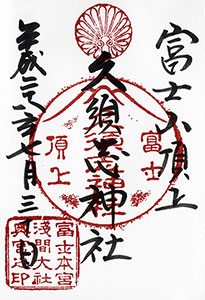 富士山頂上
久須志神社
平成二 年七月三 日
富士
頂上
富士本宮
淺間大社
奥宮之印